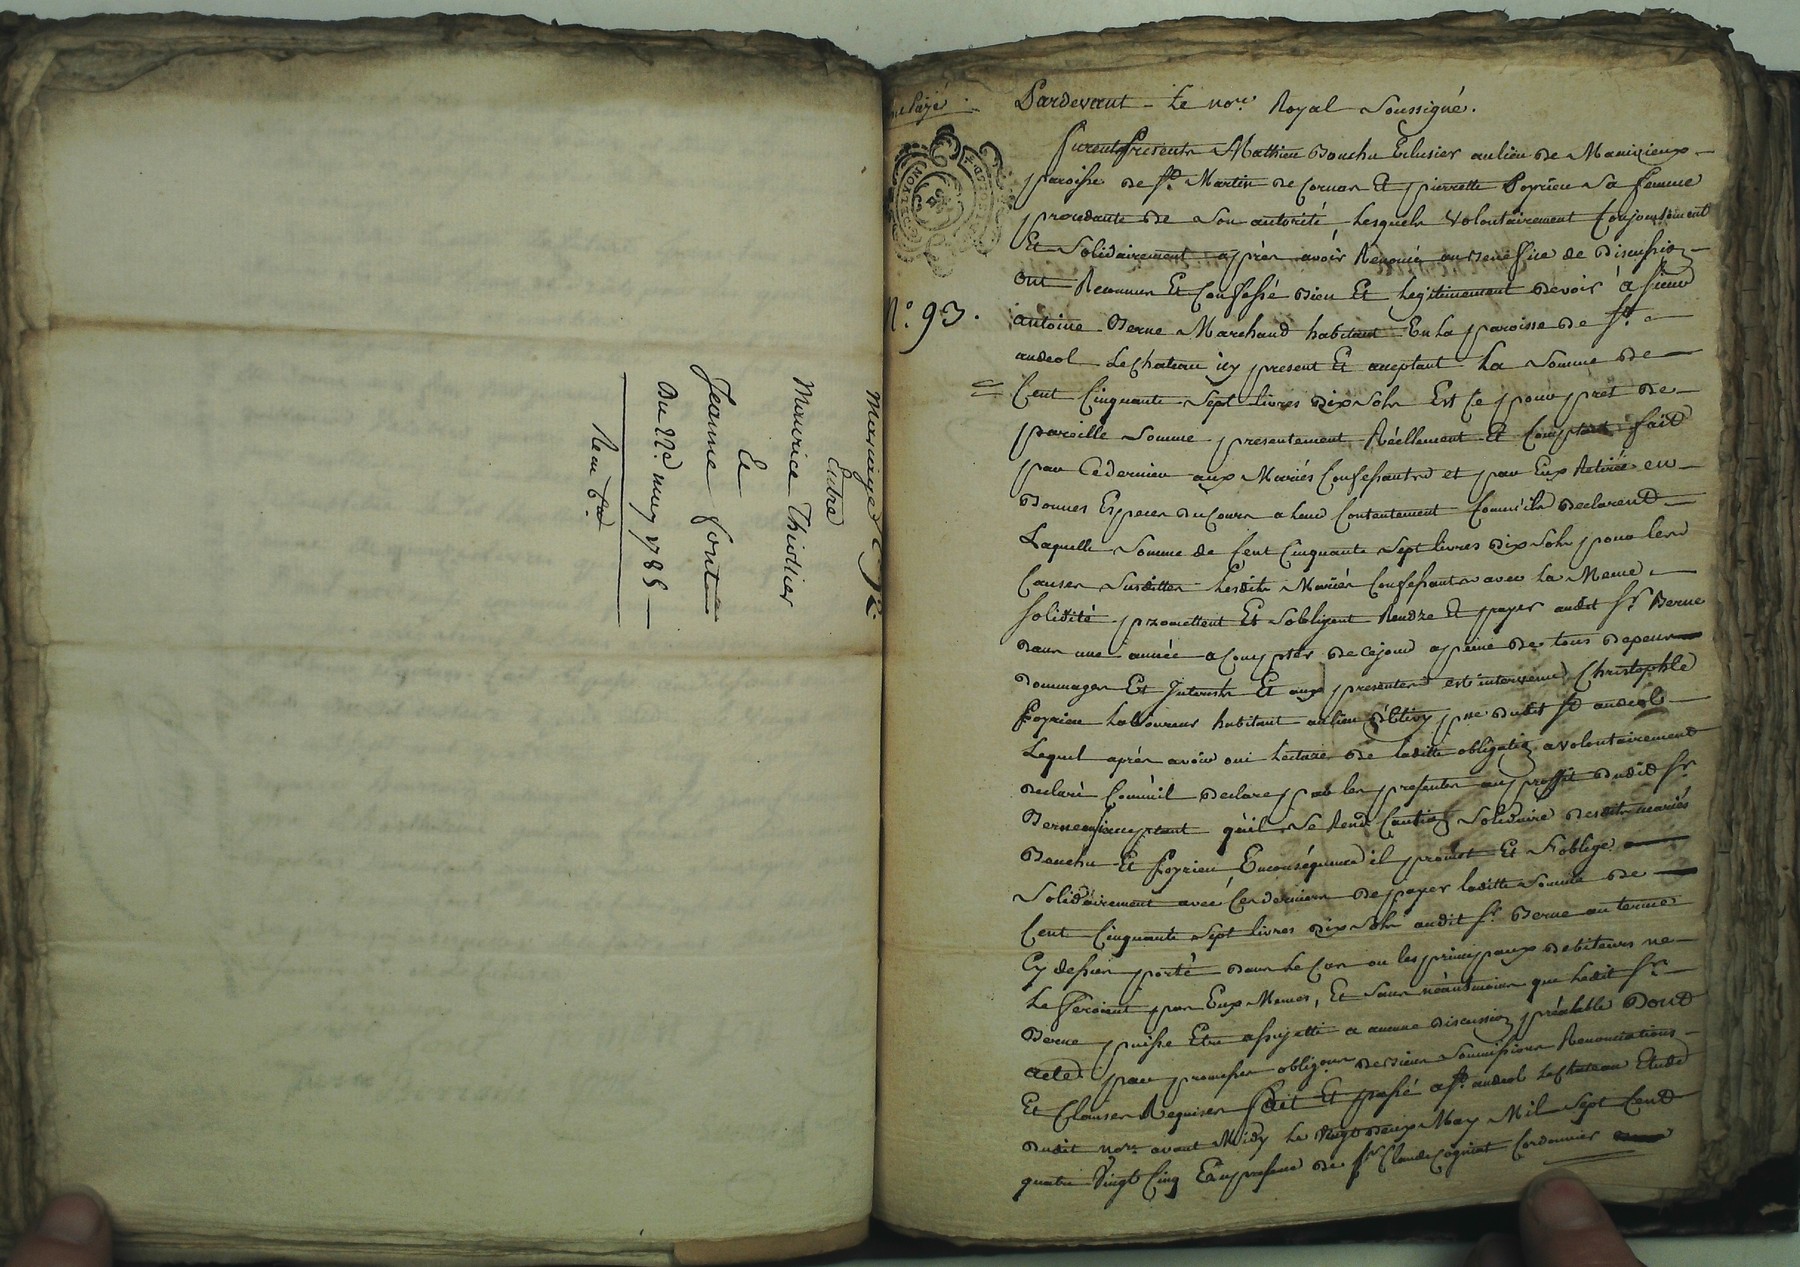 Mariage
Entre
Maurice Thivilier
Et
Jeanne font
Du 22e. may 1785
Pardevant Le nore. Royal Soussigné.
furent Presents Mathieu Bouchu Eclusier au lieu de Manizieux
paroisse de St. Martin de Cornas Et pierrette Poyrieu Sa femme
procedante de Son autorité Lesquels volontairement Conjointement
Et Solidairement après avoir Renoncé au Benefice de Discussion
ont Reconnu Et Confessé Bien Et Legitimement Devoir à sieur
N°. 93.
antoine Berne Marchand habitant En la paroisse de St.
andeol Le Chateau icy present Et acceptant La Somme De
Cent Cinquante Sept livres Dix Sols Est Ce pour pret De
pareille Somme presentement Réellement Et Comptant fait
par Ce dernier aux Mariés Confessants et par Eux Retirée en
Bonnes Especes Du Cours a leur Contentement Comm'ils Declarent
Laquelle Somme de Cent Cinquante Sept livres Dix Sols pour les
Causes Susdittes Lesdits Mariés Confessants avec La Meme
solidité promettent Et S'obligent Rendre Et payer audit Sr. Berne
dans une année a Compter De Ce jour a peine De tous Depens
Dommages Et Interets Et aux presentes est intervenu Christophle
Poyrieu Laboureur habitant au lieu psse. Dudit St. andeol
Lequel après avoir oui Lecture De laditte obligation a volontairement
Declaré Comm'il Declare par les presentes au proffit Dudit Sr.
Berne acceptant qu'il Se Rend Caution Solidaire Desdits mariés
Bouchu Et Poyrieu En conséquence il promet Et S'oblige
Solidairement avec Ces Derniers De payer laditte Somme De
Cent Cinquante Sept livres Dix Sols audit Sr. Berne au terme
Cy dessus porté Dans Le Cas ou les principaux Debiteurs ne
Le feroient par Eux Memes, Et Sans néantmoins que Ledit Sr.
Berne puisse Etre assujetti a aucune Discussion préalable Dont
acte. par promesses obligons. Soumissions Renonciations
Et Clauses Requises fait Et passé a St. andeol Le Chateau Etude
dudit nore. avant Midy Le vingt Deux May Mil Sept Cent
quatre Vingt Cinq En presence De Sr. Claude Cognet Cordonnier